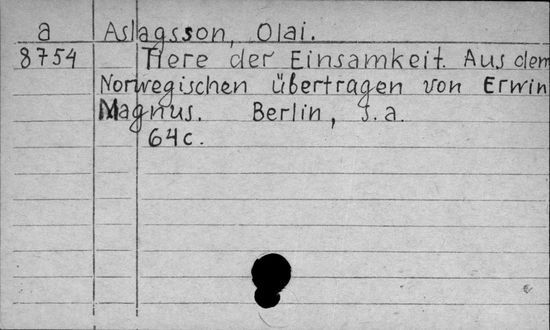 a Aslagsson, Olai.
8754 Tiere der Einsamkeit. Aus dem
Norwegischen übertragen von Erwin
Magnus. Berlin, s.a.
64c.